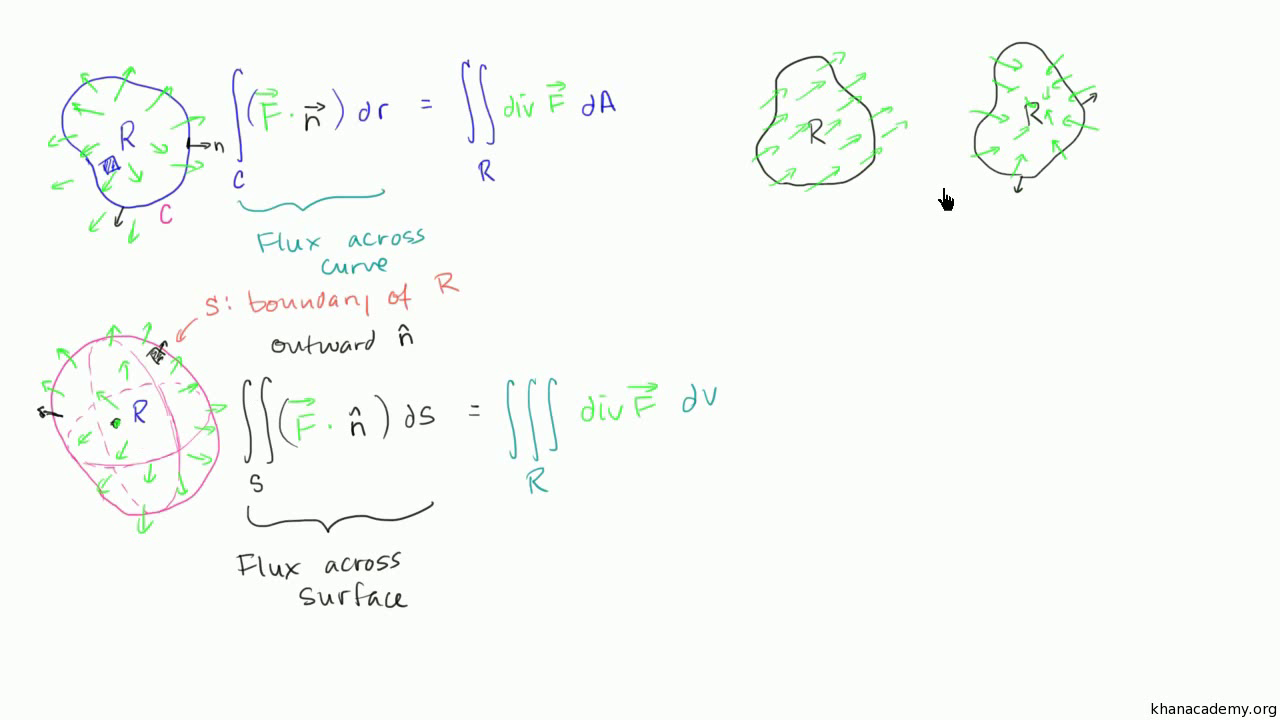 R
n
C
∫_C (F⃗ · n⃗) dr = ∬_R div F⃗ dA
Flux across
curve
R
R
S: boundary of R
outward n̂
R
∬_S (F⃗ · n̂) dS = ∭_R div F⃗ dv
Flux across
surface
khanacademy.org